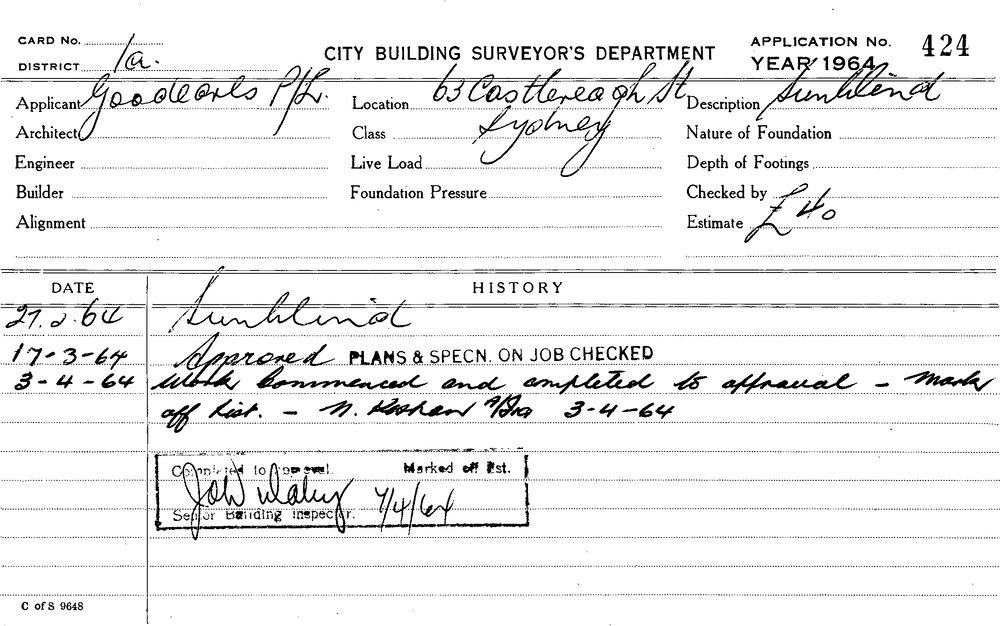 CARD No.
CITY BUILDING SURVEYOR'S DEPARTMENT
APPLICATION No. 424
DISTRICT 1a.
YEAR 1964
Applicant Goodearls P/L.
Location 63 Castlereagh St
Description Sunblind
Architect
Class Sydney
Nature of Foundation
Engineer
Live Load
Depth of Footings
Builder
Foundation Pressure
Checked by
Alignment
Estimate £40
DATE HISTORY
27.2.64 Sunblind
17-3-64 Approved PLANS & SPECN. ON JOB CHECKED
3-4-64 Work Commenced and completed to approval - Mark
off List. - N. 3-4-64
Completed to approval. Marked off list.
7/4/64
Senior Building Inspector.
C of S 9648